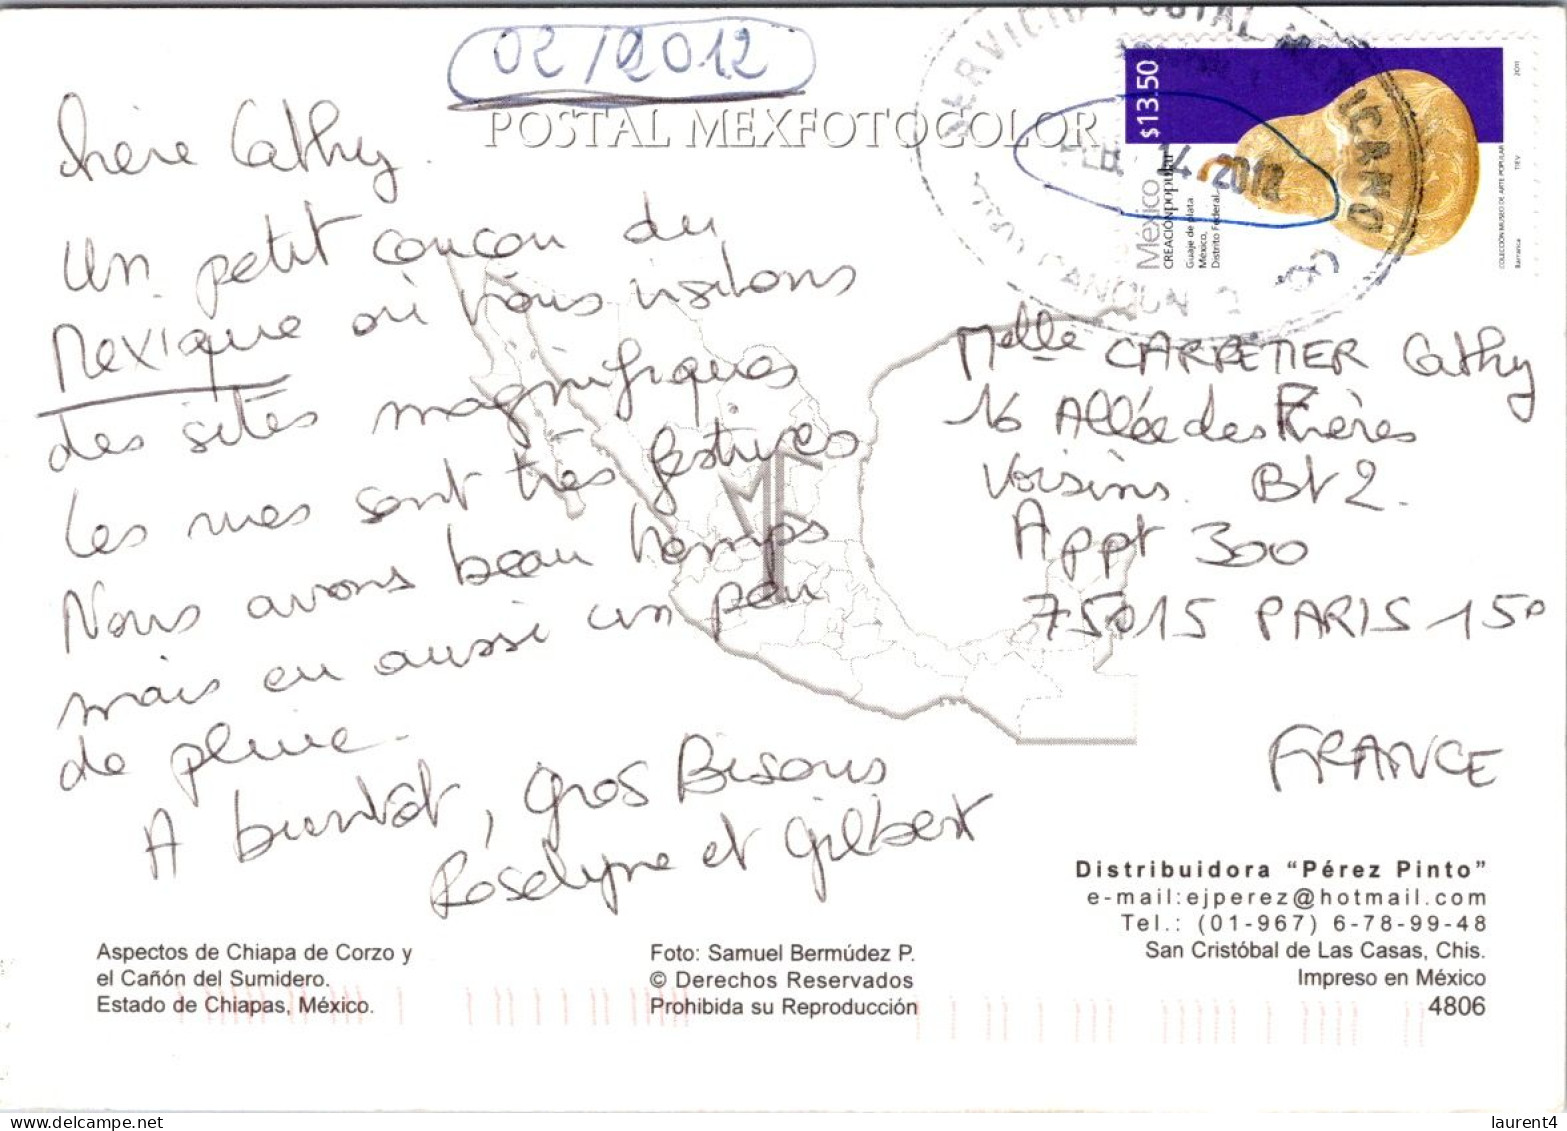 02/2012
POSTAL MEXFOTOCOLOR
SERVICIO POSTAL MEXICANO
FEB. 14 2012
CANCUN 2
$13.50
México
CREACIÓN popular
Guaje de plata
México,
Distrito Federal
COLECCIÓN MUSEO DE ARTE POPULAR
Barranca TIEV 2011
Chère Cathy.
Un petit coucou du
Mexique où nous visitons
des sites magnifiques
Les rues sont très festives
Nous avons beau temps
mais eu aussi un peu
de pluie.
A bientôt, Gros Bisous
Roselyne et Gilbert
Melle CARPETIER Cathy
16 Allée des Frères
Voisins. Bt 2.
Appt 300
75015 PARIS 15º
FRANCE
Distribuidora “Pérez Pinto”
e-mail:ejperez@hotmail.com
Tel.: (01-967) 6-78-99-48
San Cristóbal de Las Casas, Chis.
Impreso en México
4806
Aspectos de Chiapa de Corzo y
el Cañón del Sumidero.
Estado de Chiapas, México.
Foto: Samuel Bermúdez P.
© Derechos Reservados
Prohibida su Reproducción
laurent4